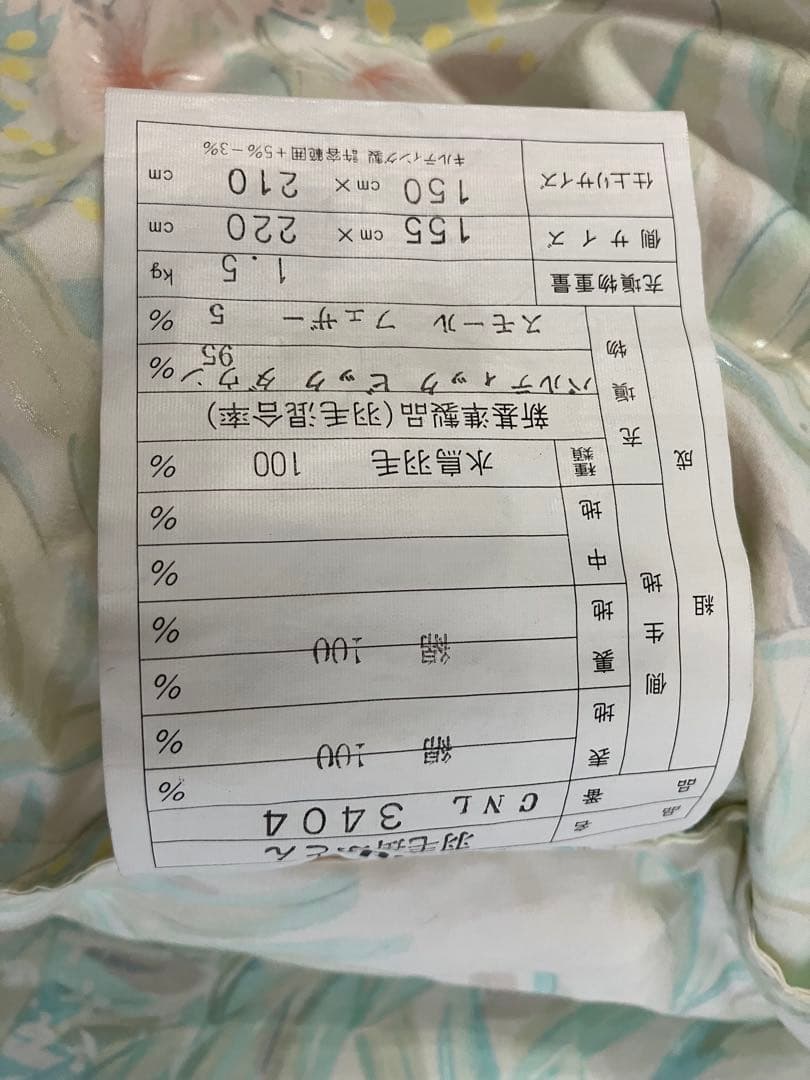 品名 羽毛掛ふとん
品番 CNL 3404
組成
側生地
表地 綿 100 %
%
裏地 綿 100 %
%
中地 %
%
充填物
種類 水鳥羽毛 100 %
新基準製品(羽毛混合率)
バルティック ビック ダウン 95 %
スモール フェザー 5 %
充填物重量 1.5 kg
側サイズ 155 cm × 220 cm
仕上りサイズ 150 cm × 210 cm
キルティング製 許容範囲+5%-3%